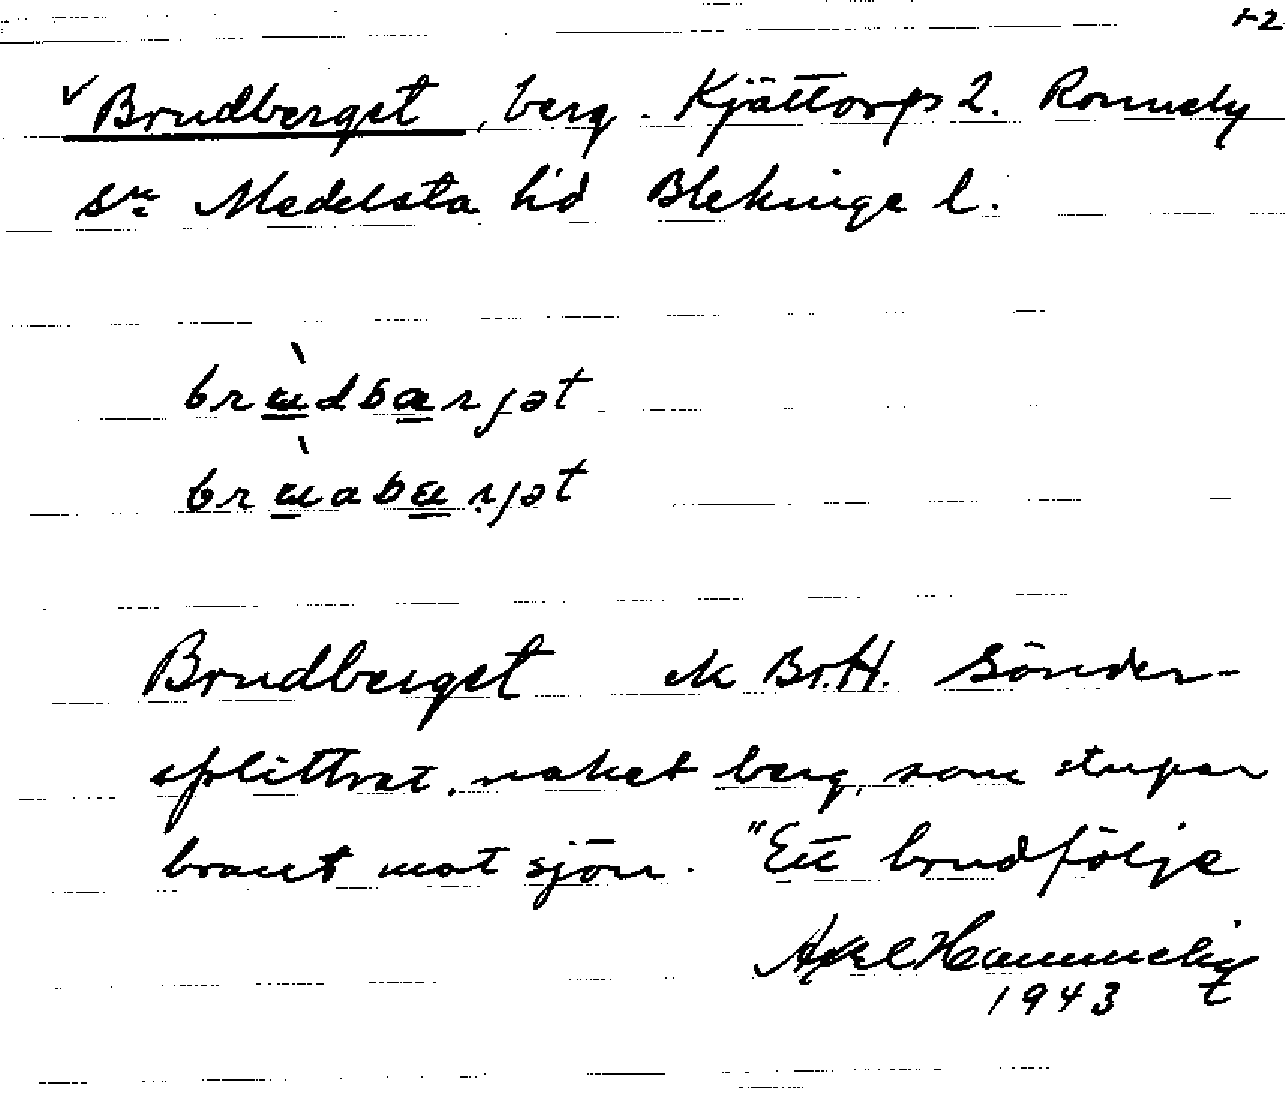 1-2
Brudberget, berg. Kjättorp 2. Ronneby
sn Medelsta hd Blekinge l.
brùdbærjət
brùabærjət
Brudberget BrH. Sönder-
splittrat, naket berg, som stupar
brant mot sjön. "Ett brudfölje
Axel
1943